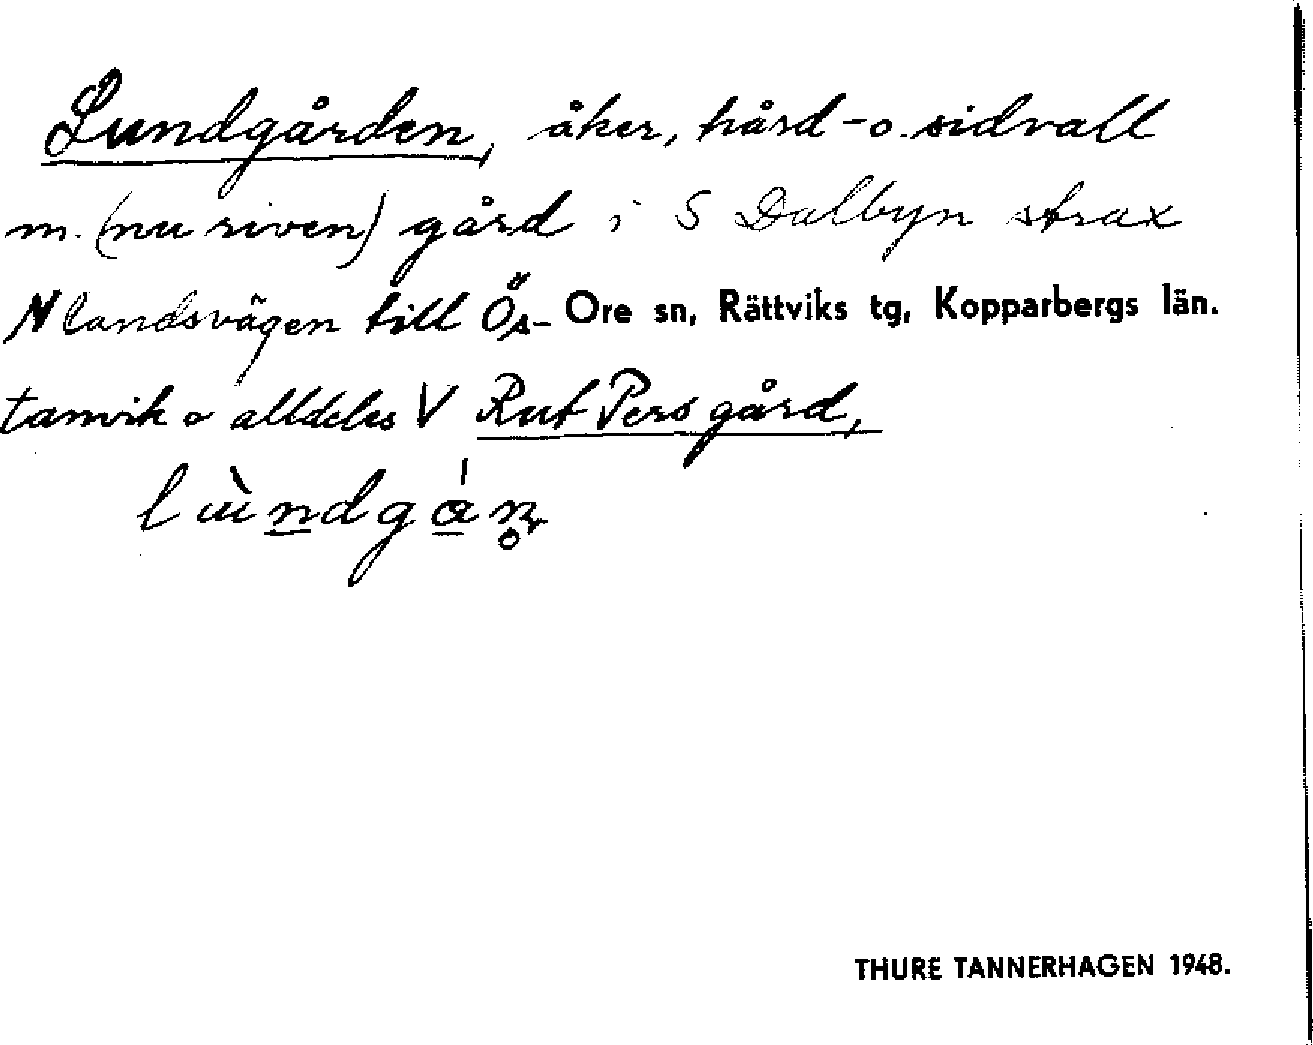 Lundgården, åker, hård- o. sidvall
m. (nu riven) gård i S Dalbyn strax
N landsvägen till Ös- Ore sn, Rättviks tg, Kopparbergs län.
tanvik o alldeles V Rut Pers gård,
THURE TANNERHAGEN 1948.